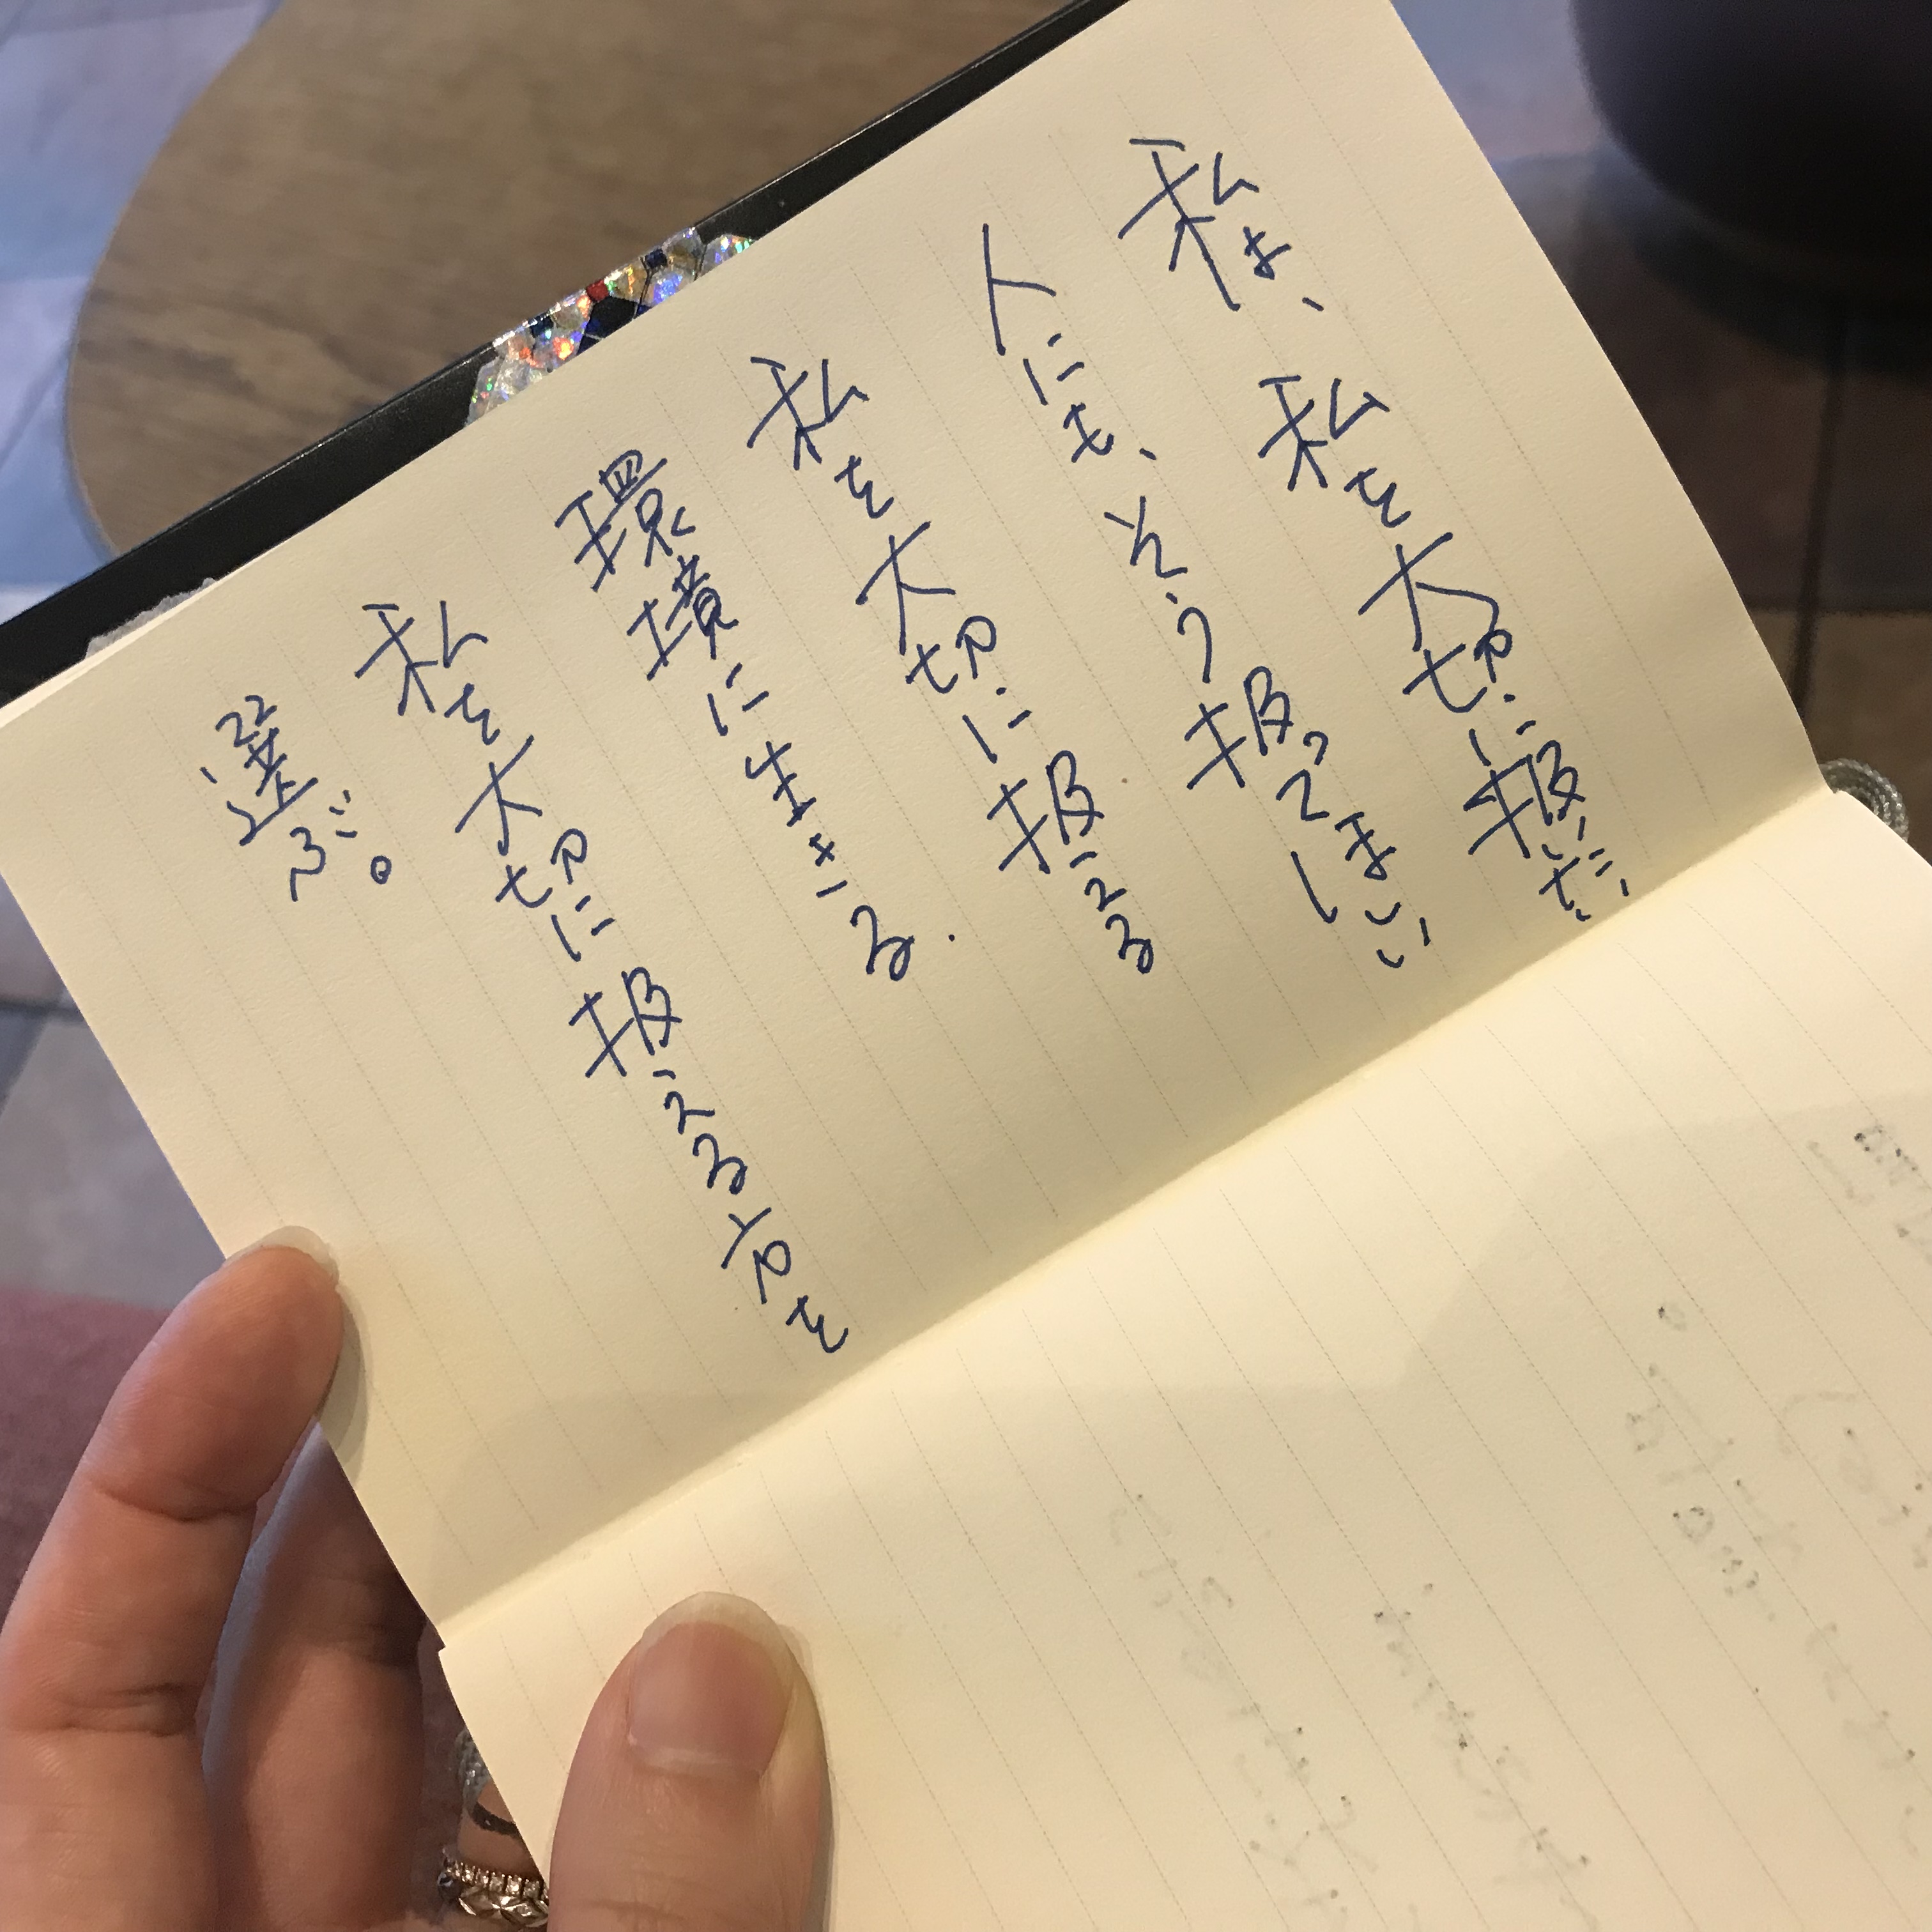 私は、私を大切に扱いたい
人にも、そう扱ってほしい
私を大切に扱える
環境に生きる.
私を大切に扱える方を
選ぶ。